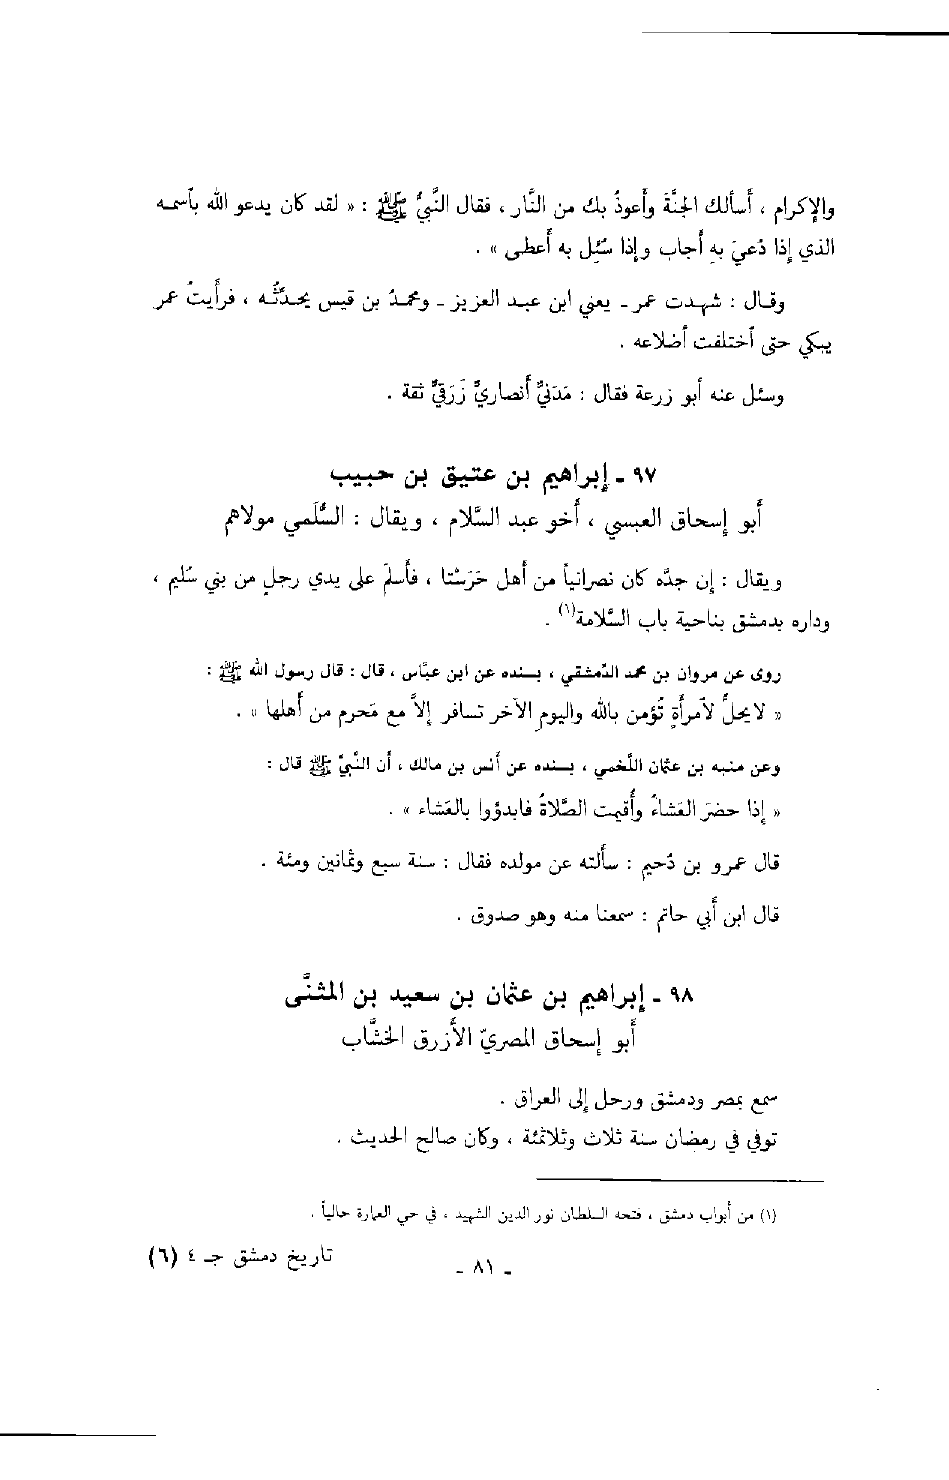 والإكرام ، أسألك الجنَّة وأعوذُ بك من النَّار ، فقال النَّبيُّ ﷺ : « لقد كان يدعو الله بآسمه
الذي إذا دُعيَ به أجاب وإذا سُئِل به أعطى » .
وقال : شهدت عمر ـ يعني ابن عبد العزيز ـ ومحمدُ بن قيس يحدِّثُه ، فرأيتُ عمر
يبكي حتى آختلفت أضلاعه .
وسئل عنه أبو زرعة فقال : مَدَنيٌّ أنصاريٌّ زَرَقيٌّ ثقة .
٩٧ ـ إبراهيم بن عتيق بن حبيب
أبو إسحاق العبسي ، أخو عبد السَّلام ، ويقال : السُّلَمي مولاهم
ويقال : إن جدَّه كان نصرانياً من أهل حَرَسْتا ، فأسلمَ على يدي رجلٍ من بني سُليم ،
وداره بدمشق بناحية باب السَّلامة(١) .
روى عن مروان بن محمد الدِّمشقي ، بسنده عن ابن عبَّاس ، قال : قال رسول الله ﷺ :
« لا يحلُّ لآمرأةٍ تُؤمن بالله واليوم الآخر تسافر إلاَّ مع مَحرم من أهلها » .
وعن منبه بن عثمان اللَّخمي ، بسنده عن أنس بن مالك ، أن النَّبيَّ ﷺ قال :
« إذا حضرَ العَشاءُ وأُقيمت الصَّلاةُ فابدؤوا بالعَشاء » .
قال عمرو بن دُحيم : سألته عن مولده فقال : سنة سبع وثمانين ومئة .
قال ابن أبي حاتم : سمعنا منه وهو صدوق .
٩٨ ـ إبراهيم بن عثمان بن سعيد بن المثنَّى
أبو إسحاق المصريّ الأزرق الخشَّاب
سمع بمصر ودمشق ورحل إلى العراق .
توفي في رمضان سنة ثلاث وثلاثمئة ، وكان صالح الحديث .
(١) من أبواب دمشق ، فتحه السلطان نور الدين الشهيد ، في حي العمارة حالياً .
ـ ٨١ ـ
تاريخ دمشق جـ ٤ (٦)